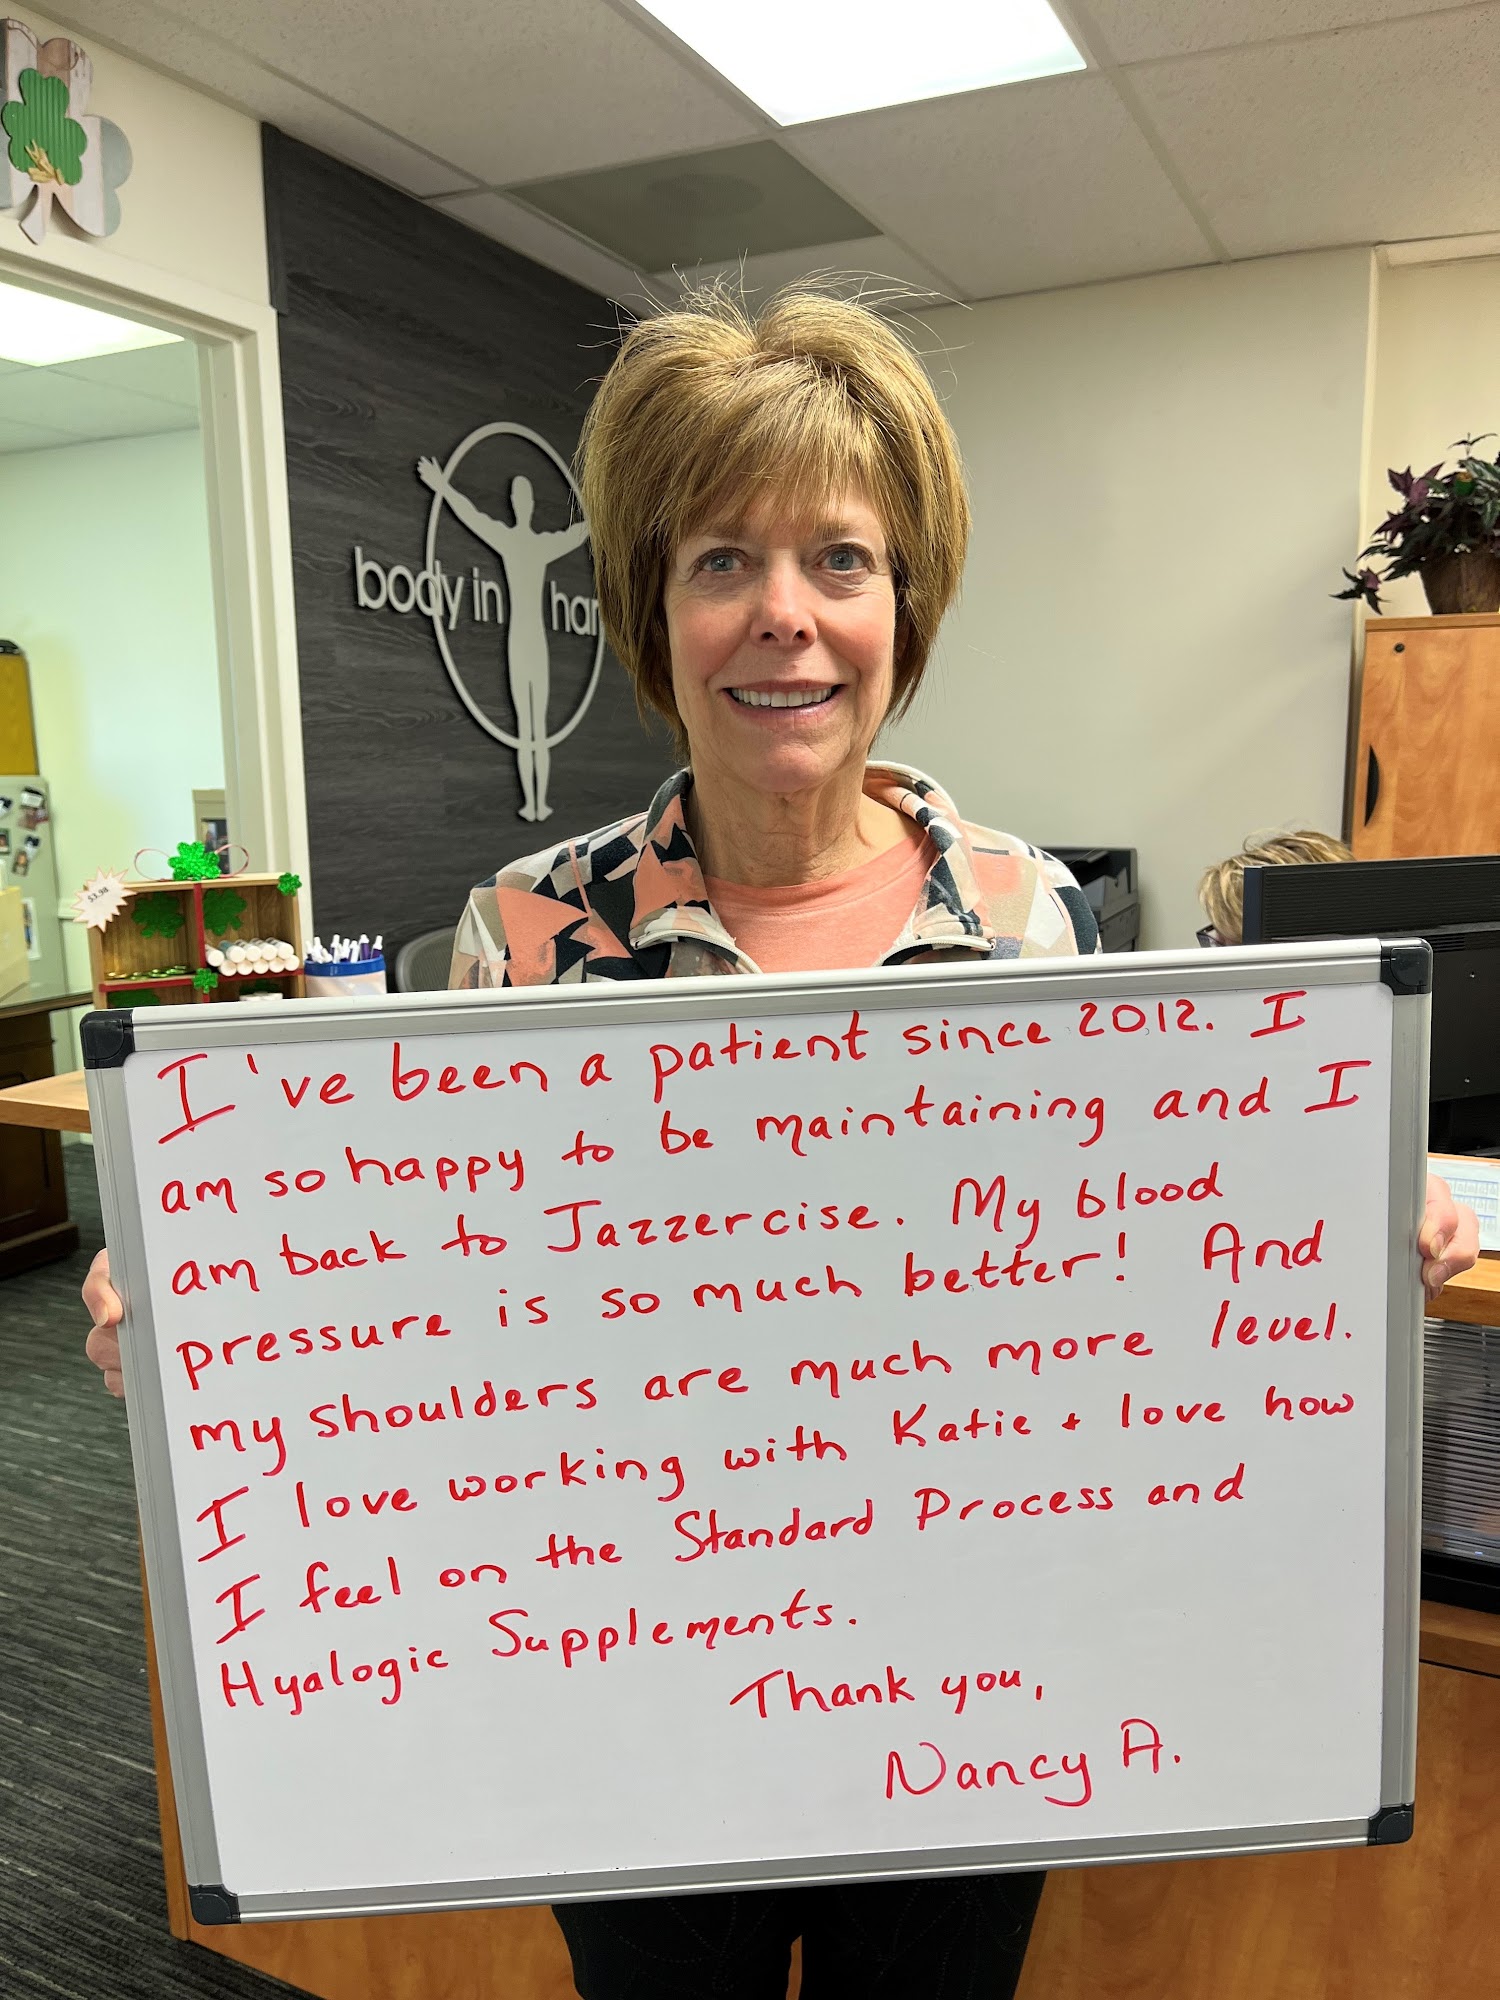 $3.98
body in har
I've been a patient since 2012. I
am so happy to be maintaining and I
am back to Jazzercise. My blood
pressure is so much better! And
my shoulders are much more level.
I love working with Katie + love how
I feel on the Standard Process and
Hyalogic Supplements.
Thank you,
Nancy A.